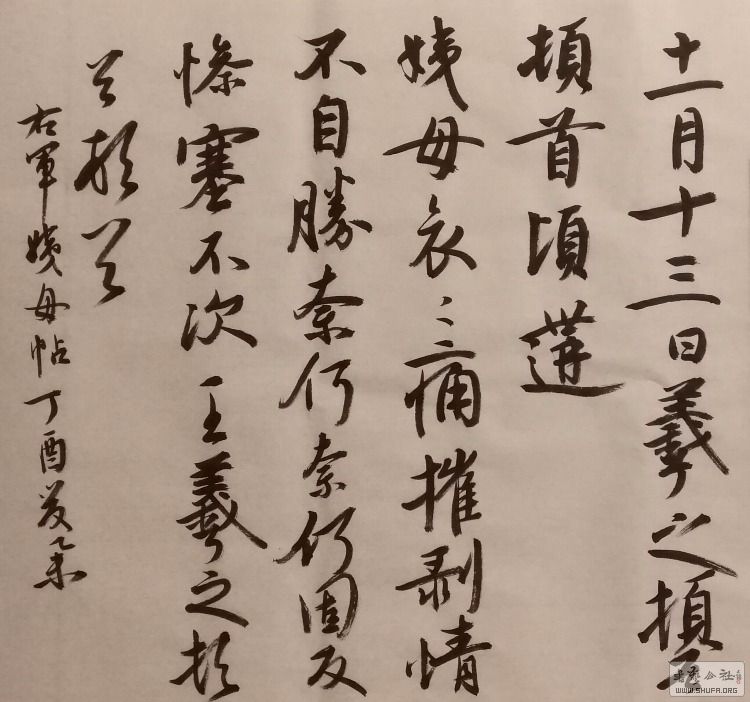 十一月十三日羲之頓首
頓首頃遘
姨母哀〻痛摧剥情
不自勝奈何奈何因反
慘塞不次王羲之頓
首頓首
右軍姨母帖丁酉
公社
WWW.SHUFA.ORG